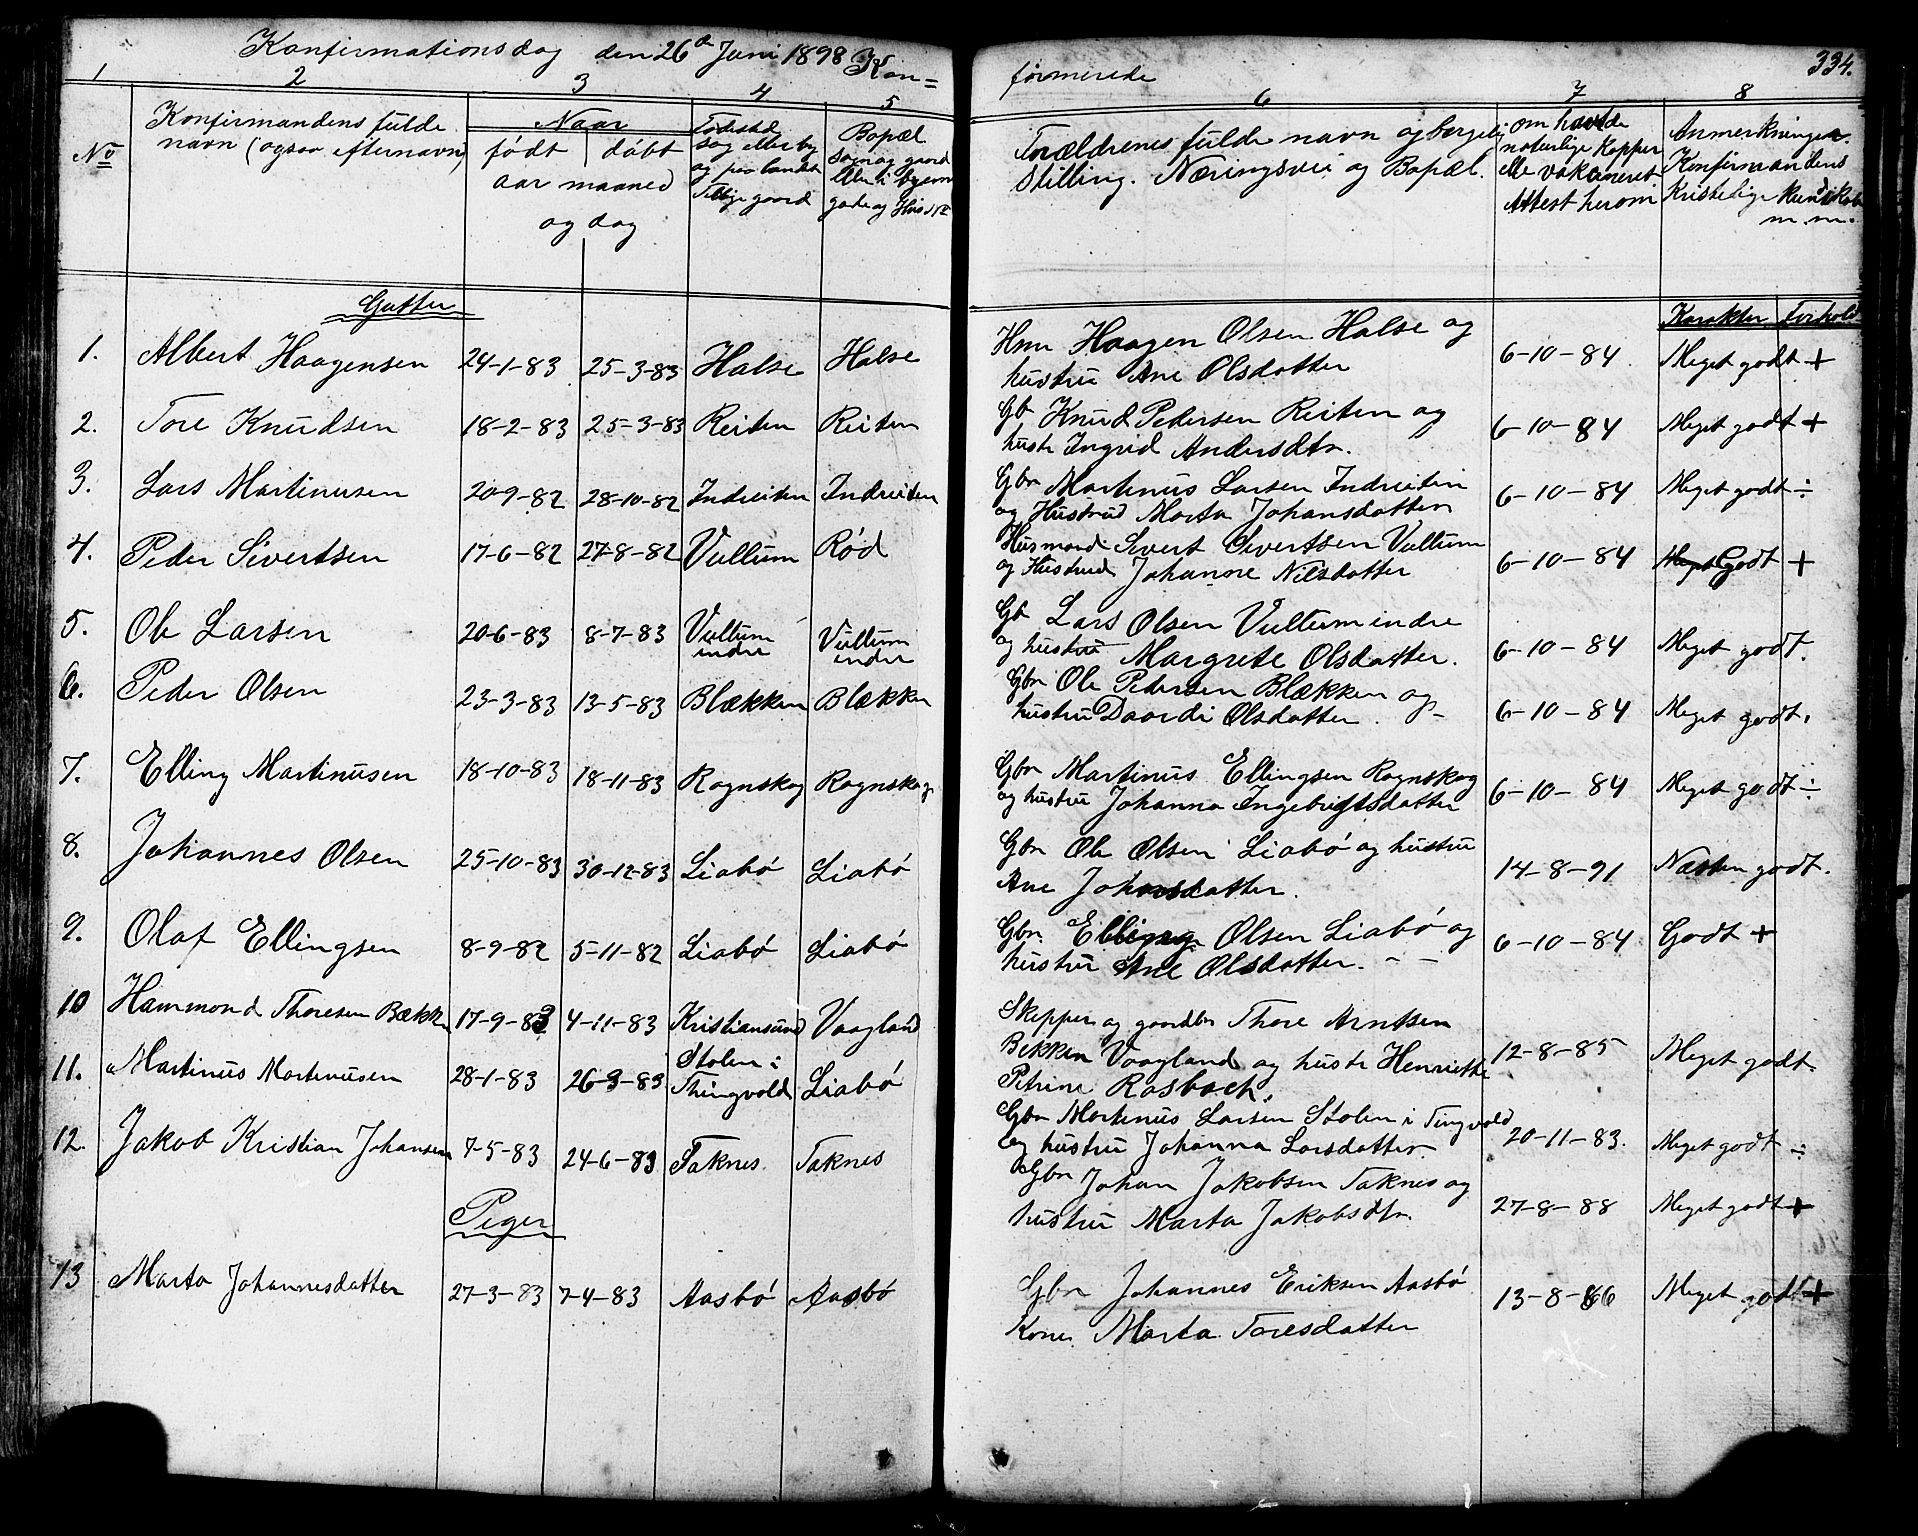 Konfirmationsdag den 26de Juni 1898 Kon=
firmerede 334.
1 2 3 4 5 6 7 8
No
Konfirmandens fulde
navn (ogsaa efternavn)
Naar
født | døbt
aar maaned
og dag
Fødested
sog eller by
og paa landet
Tillige gaard
Bopæl
Sogn og gaard
Eller i byen
gade og Hus No
Forældrenes fulde navn og borgelig
Stilling. Næringsvei og Bopæl.
om havde
naturlige Kopper
eller vaksineret
Attest herom
Anmerkninger.
Konfirmandens
Kristelige Kundskab
m.m.
Gutter
Karakter Forhold
1. Albert Haagensen 24-1-83 25-3-83 Halse Halse Hmn Haagen Olsen Halse og
hustru Ane Olsdatter 6-10-84 Meget godt +
2. Tore Knudsen 18-2-83 25-3-83 Reiten Reiten Gb Knud Pedersen Reiten og
hustr Ingrid Andersdtr. 6-10-84 Meget godt +
3. Lars Martinusen 20-9-82 28-10-82 Indreiten Indreiten Gbr Martinus Larsen Indreiten
og Hustrud Marta Johansdatter 6-10-84 Meget godt ÷
4. Peder Sivertsen 17-6-82 27-8-82 Vullum Rød Husmand Sivert Sivertsen Vullum
og Hustrud Johanne Nilsdatter 6-10-84 Meget Godt +
5. Ole Larsen 20-6-83 8-7-83 Vullum
indre Vullum
indre Gb Lars Olsen Vullum indre
og hustru Margrete Olsdatter. 6-10-84 Meget godt.
6. Peder Olsen 23-3-83 13-5-83 Blækken Blækken Gbr Ole Pedersen Blækken og
hustru Daardi Olsdatter. 6-10-84 Meget godt.
7. Elling Martinusen 18-10-83 18-11-83 Rognskog Rognskog Gbr Martinus Ellingsen Rognskog
og hustru Johanna Ingebrigtsdatter 6-10-84 Meget godt ÷
8. Johannes Olsen 25-10-83 30-12-83 Liabø Liabø Gbr Ole Olsen Liabø og hustru
Ane Johansdatter. 14-8-91 Næsten godt.
9. Olaf Ellingsen 8-9-82 5-11-82 Liabø Liabø Gbr. Elling Olsen Liabø og
hustru Ane Olsdatter. 6-10-84 Godt +
10 Hammond Thoresen Bækken 17-9-83 4-11-83 Kristiansund Vaagland Skepper og gaardbr Thore Arntsen
Bekken Vaagland og hustr Henriette
Petrine Rasbach. 12-8-85 Meget godt.
11. Martinus Martinusen 28-1-83 26-3-83 Stolen i
Thingvold Liabø Gbr Martinus Larsen Stolen i Tingvold
og hustru Johanna Larsdatter. 20-11-83. Meget godt ÷
12. Jakob Kristian Johansen 7-5-83 24-6-83 Taknes. Taknes Gbr Johan Jakobsen Taknes og
hustru Marta Jakobsdtr. 27-8-88 Meget godt +
Piger
13 Marta Johannesdatter 27-3-83 7-4-83 Aasbø Aasbø Gbr Johannes Eriksen Aasbø
Kone. Marta Toresdatter 13-8-86 Meget godt +